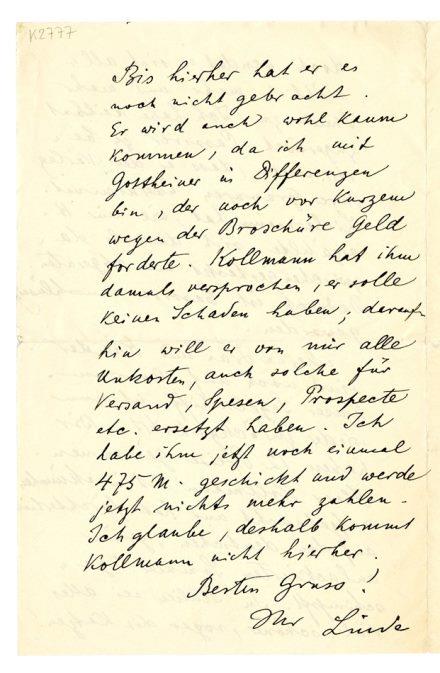 K2777
Bis hierher hat er es
noch nicht gebracht.
Er wird auch wohl kaum
kommen, da ich mit
Gottheiner in Differenzen
bin, der noch vor Kurzem
wegen der Broschüre Geld
forderte. Kollmann hat ihm
damals versprochen, er solle
keinen Schaden haben; daraufhin
hin will er von mir alle
Unkosten, auch solche für
Versand, Spesen, Prospecte
etc. ersetzt haben. Ich
habe ihm jetzt noch einmal
475 M. geschickt und werde
jetzt nichts mehr zahlen.
Ich glaube, deshalb kommt
Kollmann nicht hierher.
Besten Gruss!
Ihr Linde